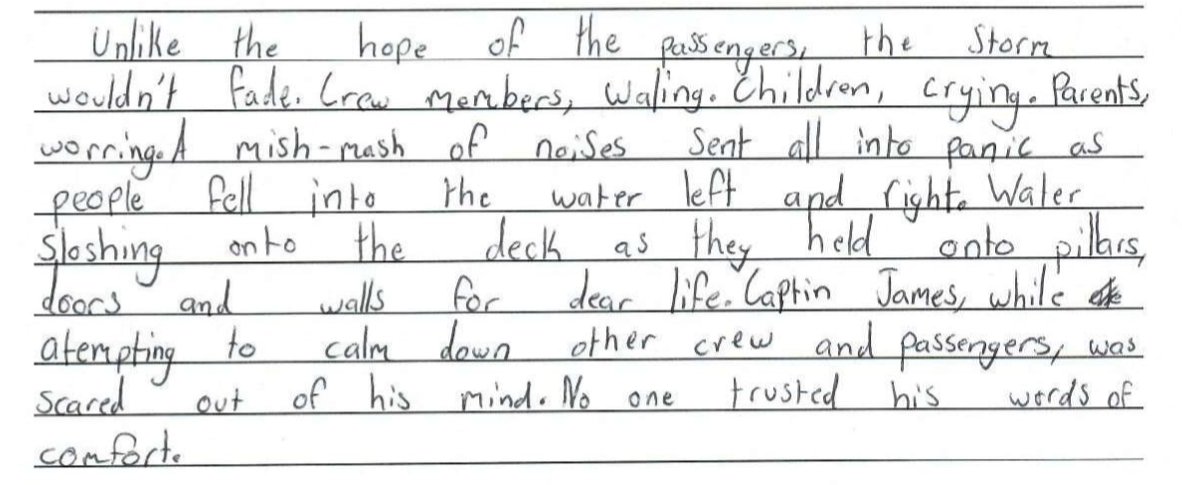 Unlike the hope of the passengers, the storm
wouldn't fade. Crew members, waling. Children, crying. Parents,
worring. A mish-mash of noises sent all into panic as
people fell into the water left and right. Water
sloshing onto the deck as they held onto pillars,
doors and walls for dear life. Captin James, while
atempting to calm down other crew and passengers, was
scared out of his mind. No one trusted his words of
comfort.